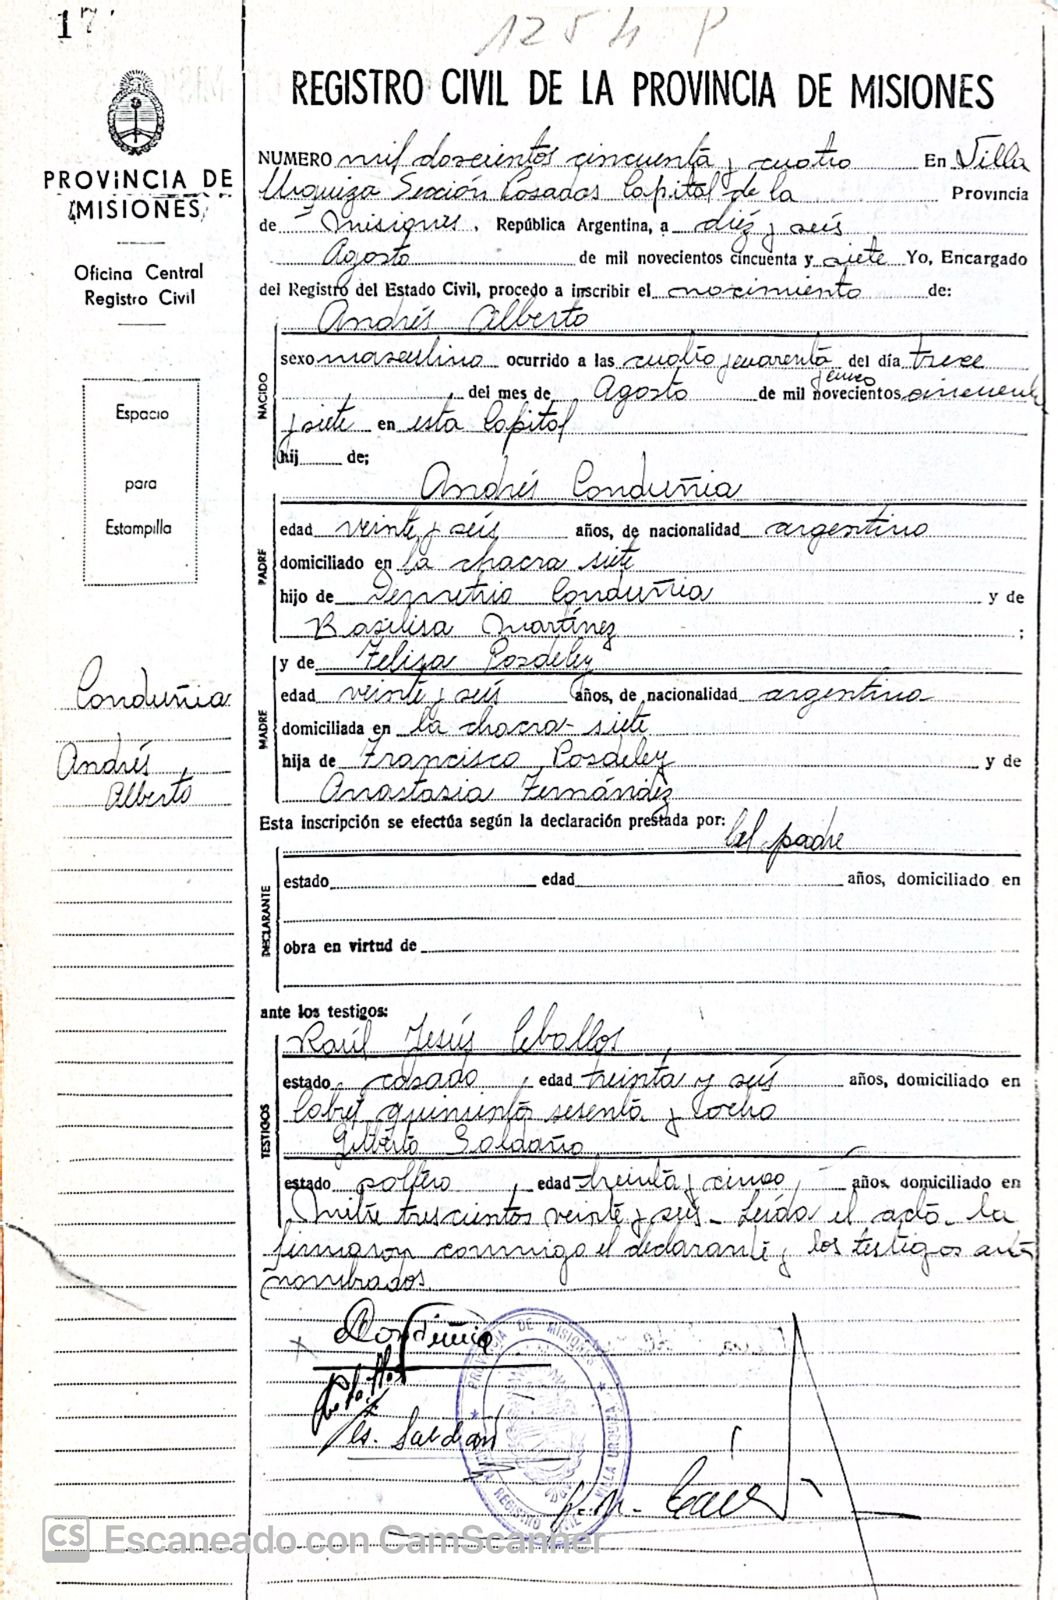 17
1254 P
REGISTRO CIVIL DE LA PROVINCIA DE MISIONES
PROVINCIA DE
MISIONES
Oficina Central
Registro Civil
Espacio
para
Estampilla
Conduñia
Andrés
Alberto
NUMERO mil doscientos cincuenta y cuatro En Villa
Urquiza Sección Posadas Capital de la Provincia
de Misiones. República Argentina, a diez y seis
Agosto de mil novecientos cincuenta y siete Yo, Encargado
del Registro del Estado Civil, procedo a inscribir el nacimiento de:
Andrés Alberto
NACIDO
sexo masculino ocurrido a las cuatro y cuarenta del día trece
y cinco
del mes de Agosto de mil novecientos cincuenta
y siete en esta Capital
hij de;
Andrés Conduñia
PADRE
edad veinte y seis años, de nacionalidad argentino
domiciliado en la chacra siete
hijo de Demetrio Conduñia y de
Basilisa Martínez ;
y de Felisa Posdeley
MADRE
edad veinte y seis años, de nacionalidad argentina
domiciliada en la chacra siete
hija de Francisco Posdeley y de
Anastasia Fernández
Esta inscripción se efectúa según la declaración prestada por: el padre
DECLARANTE
estado edad años, domiciliado en
obra en virtud de
ante los testigos:
Raúl Jesús Ceballos
TESTIGOS
estado casado, edad treinta y seis años, domiciliado en
quinientos sesenta y ocho
Gilberto Soldaño
estado soltero, edad treinta y cinco, años, domiciliado en
Mitre trescientos veinte y seis - Leída el acta la
firmaron conmigo el declarante y los testigos ante
nombrados.
PROVINCIA DE MISIONES
VILLA URQUIZA
REGISTRO CIVIL
CS Escaneado con CamScanner